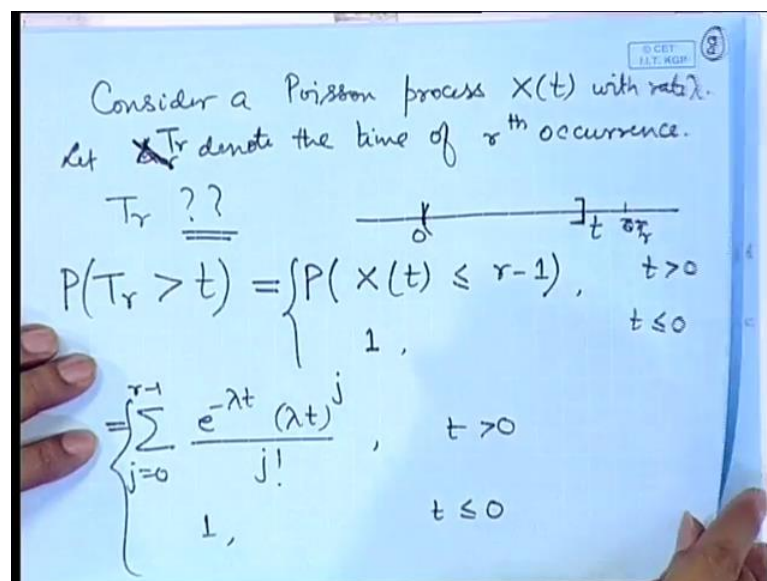 © CET
I.I.T. KGP
Consider a Poisson process X(t) with rate λ.
Let Tr denote the time of rth occurrence.
Tr ??
0 ] t Tr
P(Tr > t) = { P( X(t) ≤ r-1), t>0
1, t ≤ 0
= { Σ_{j=0}^{r-1} e^{-λt} (λt)^j / j! , t >0
1, t ≤ 0